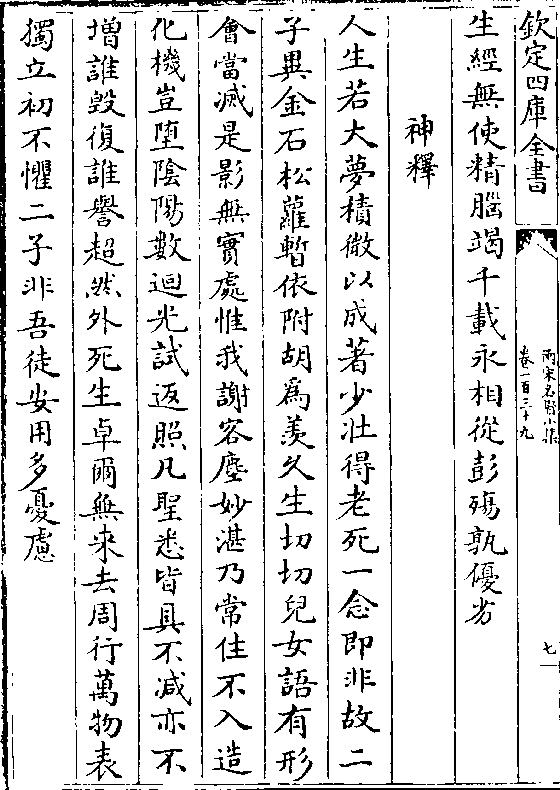 欽定四庫全書
兩宋名賢小集
卷一百三十九
七
生經無使精腦竭千載永相從彭殤孰優劣
神釋
人生若大夢積微以成著少壯得老死一念即非故二
子異金石松蘿暫依附胡為羨久生切切兒女語有形
會當滅是影無實處惟我謝客塵妙湛乃常住不入造
化機豈墮陰陽數迴光試返照凡聖悉皆具不減亦不
増誰毀復誰譽超然外死生卓爾無來去周行萬物表
獨立初不懼二子非吾徒安用多憂慮